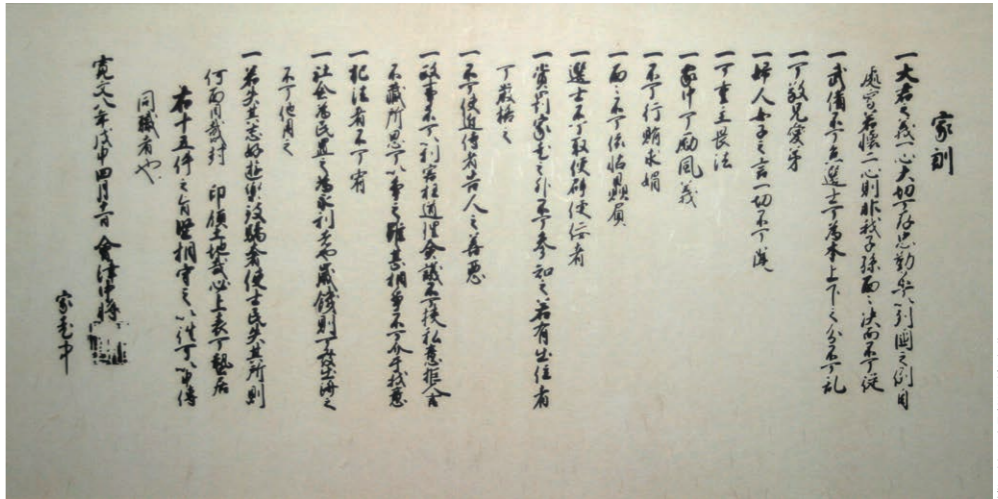 家訓
一大君之義一心大切可存忠勤不可以列國之例自
處焉若懐二心則非我子孫面々決而不可従
一武備不可怠選士可為本上下之分不可乱
一可敬兄愛弟
一婦人女子之言一切不可聞
一可重主畏法
一家中可励風義
一不可行賄求媚
一面々不可依怙贔屓
一選士不可取便辟便佞者
一賞罰家老之外不可参知之若有出位者
可厳格之
一不可使近侍者告人之善悪
一政事不可以利害枉道理僉議不可挟私意拒人言
不蔵所思可以争之雖甚相争不可介于我意
一犯法者不可宥
一社倉為民置之為永利者也歳饑則可發出済之
不可他用之
一若失其志好遊楽致驕奢使士民失其所則
何面目戴封印領土地哉必上表可蟄居
右十五件之旨堅相守之以往可以申傳
同職者也
寛文八年戊申四月十一日 會津中將
家老中